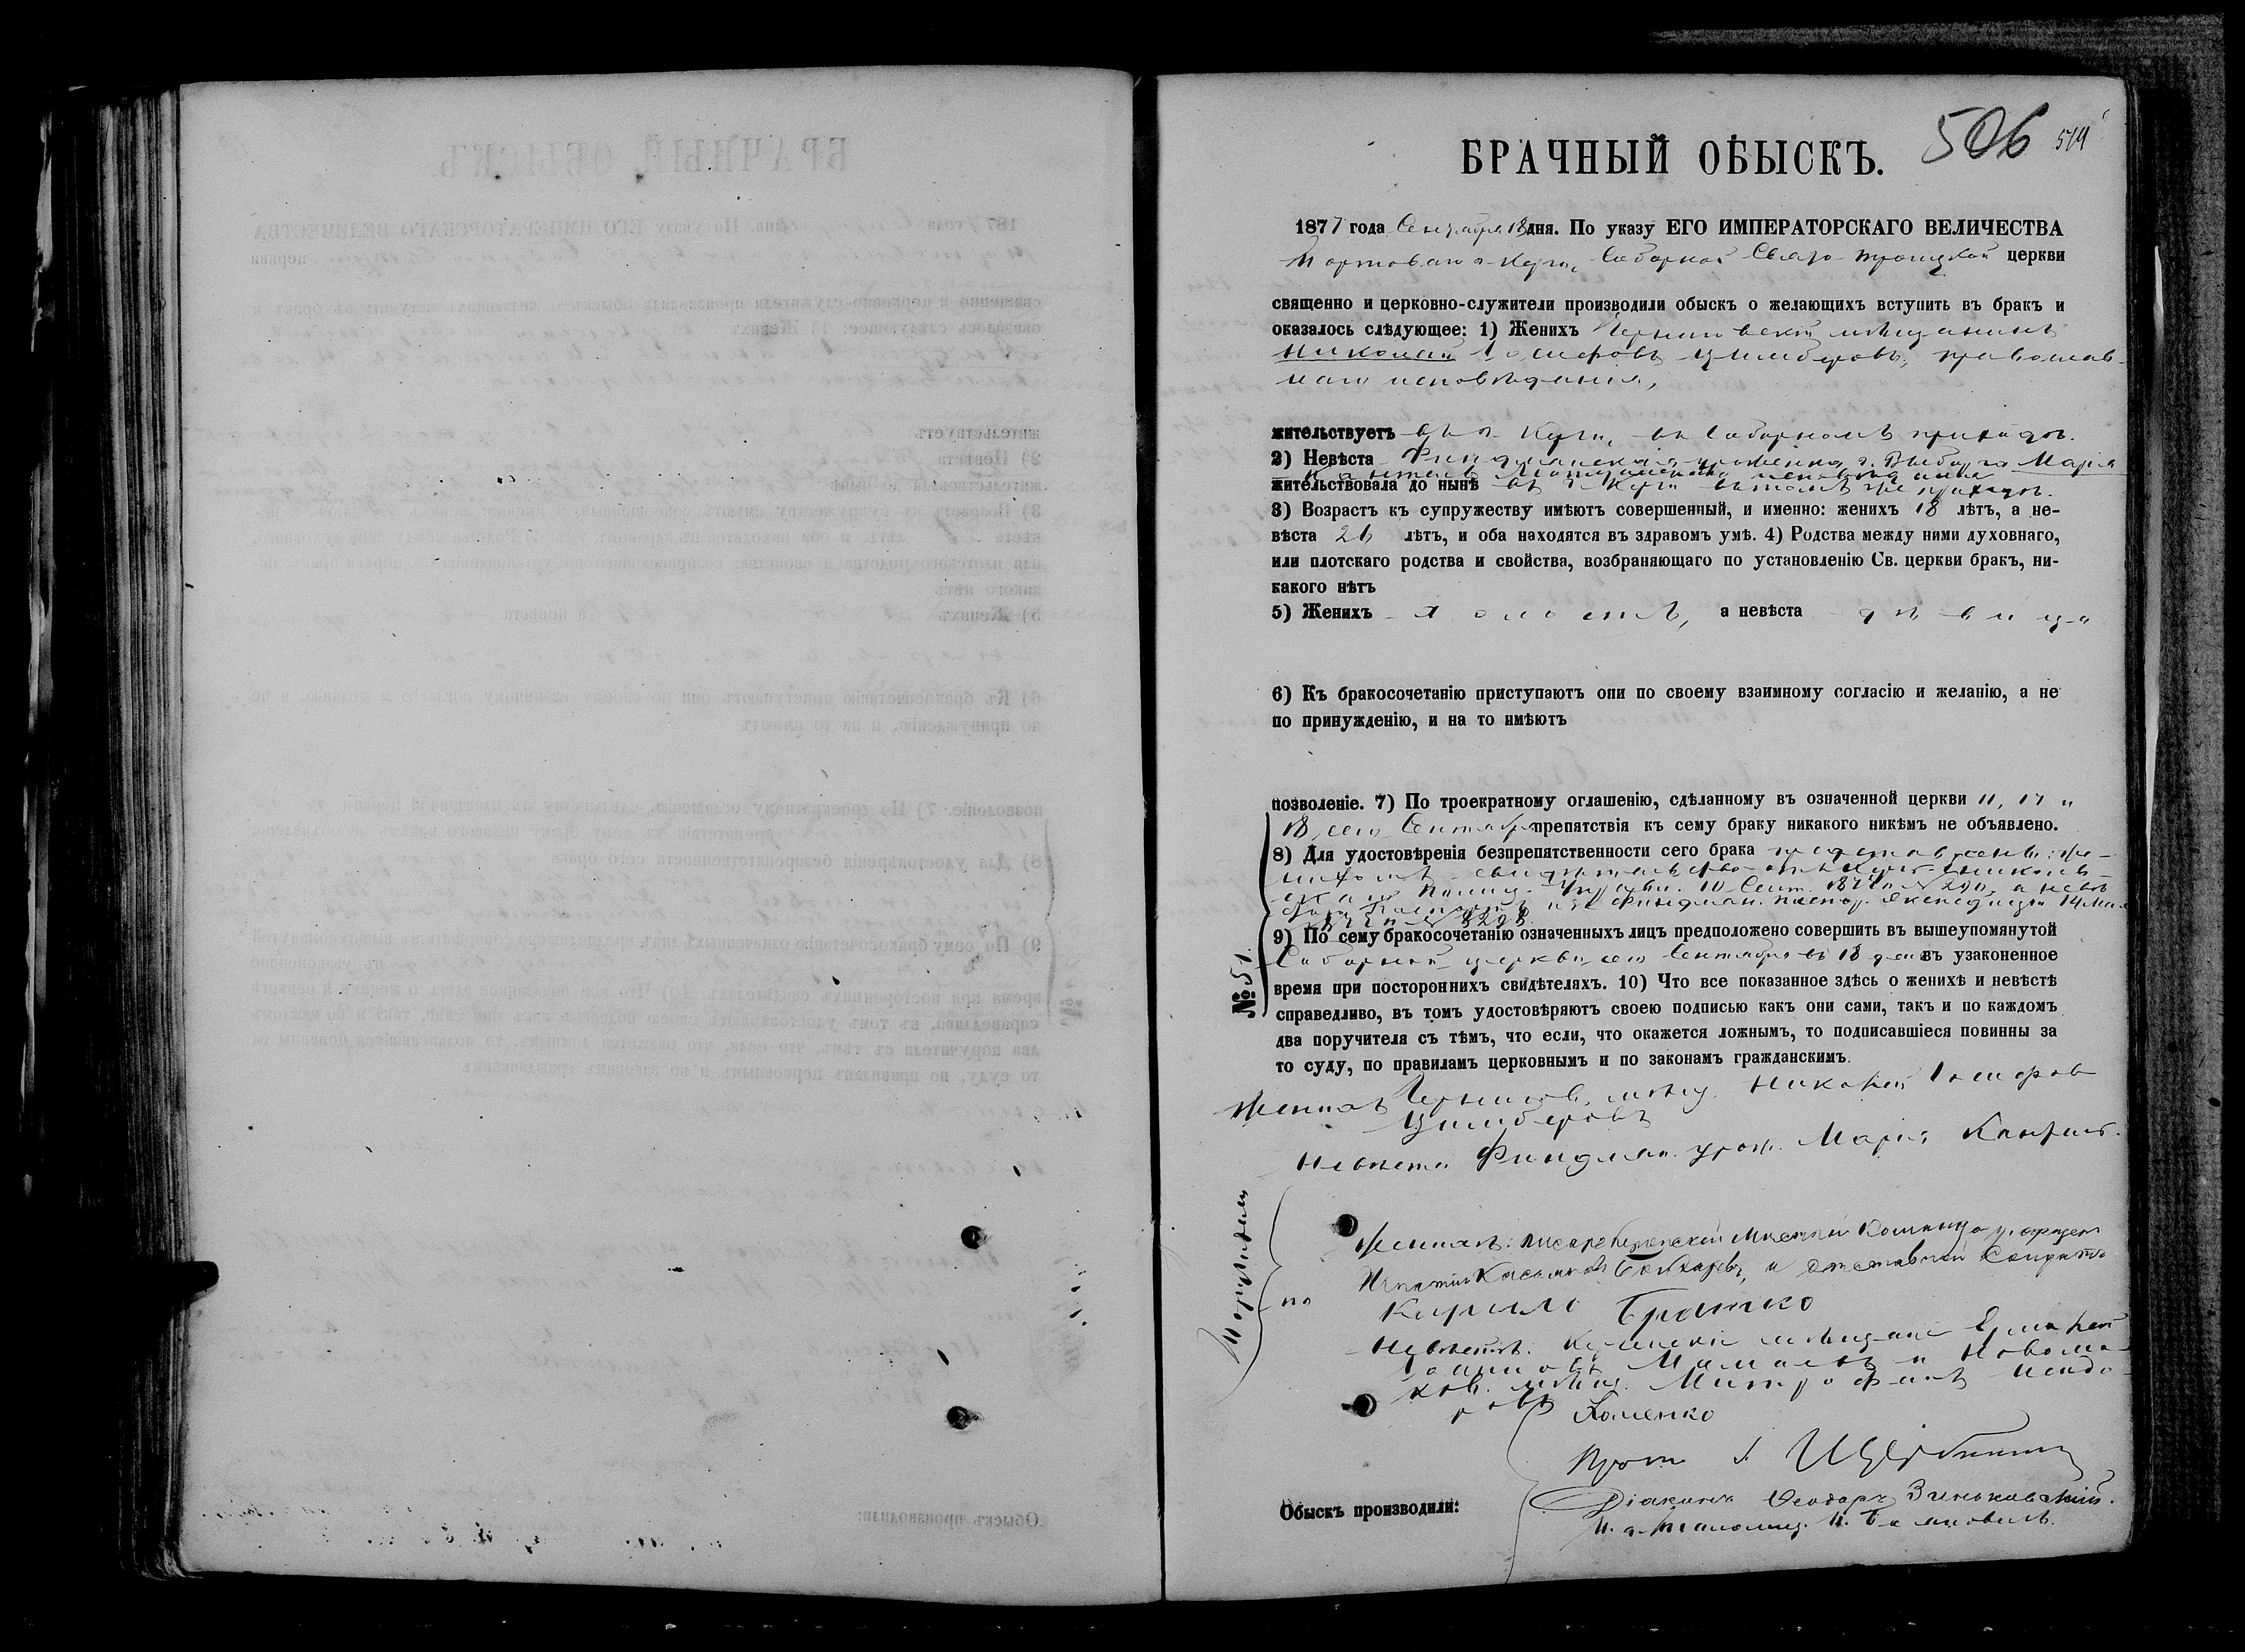 506 514
БРАЧНЫЙ ОБЫСКЪ.
1877 года Сентября 18 дня. По указу ЕГО ИМПЕРАТОРСКАГО ВЕЛИЧЕСТВА
Портоваго г. Керчи, Соборной Свято-Троицкой церкви
священно и церковно-служители производили обыскъ о желающихъ вступить въ бракъ и
оказалось слѣдующее: 1) Женихъ Черниговскій мѣщанинъ
Николай Іосифовъ Цимберовъ, православ-
наго исповѣданія,
жительствуетъ въ г. Керчи, въ Соборномъ приходѣ.
2) Невѣста Финляндская уроженка г. Выборга Марія
исповѣданія
жительствовала до нынѣ въ г. Керчи въ томъ же приходѣ.
3) Возрастъ къ супружеству имѣютъ совершенный, и именно: женихъ 18 лѣтъ, а не-
вѣста 26 лѣтъ, и оба находятся въ здравомъ умѣ. 4) Родства между ними духовнаго,
или плотскаго родства и свойства, возбраняющаго по установленію Св. церкви бракъ, ни-
какого нѣтъ
5) Женихъ холостъ, а невѣста дѣвица
6) Къ бракосочетанію приступаютъ они по своему взаимному согласію и желанію, а не
по принужденію, и на то имѣютъ
позволеніе. 7) По троекратному оглашенію, сдѣланному въ означенной церкви 11, 17 и
18 сего Сентября препятствія къ сему браку никакого никѣмъ не объявлено.
8) Для удостовѣренія безпрепятственности сего брака представлены: же-
нихомъ - свидѣтельство отъ Керчь-Еникольс-
каго Полиц. Управл. 10 Сент. а невѣ
стою Паспортъ изъ Финлян. паспор. Экспедиціи 14 Мая
№ 8298.
9) По сему бракосочетанію означенныхъ лицъ предположено совершить въ вышеупомянутой
Соборной церкви сего Сентября въ 18 день въ узаконенное
№ 51.
время при постороннихъ свидѣтеляхъ. 10) Что все показанное здѣсь о женихѣ и невѣстѣ
справедливо, въ томъ удостовѣряютъ своею подписью какъ они сами, такъ и по каждомъ
два поручителя съ тѣмъ, что если, что окажется ложнымъ, то подписавшіеся повинны за
то суду, по правиламъ церковнымъ и по законамъ гражданскимъ.
Женихъ Чернигов. мѣщ. Николай Іосифов
Цимберовъ
Невѣста Финлян. урож. Марія
Поручители
по
Женихѣ: писарь Керченской Мѣстной Команды у. офицеръ
Игнатій Касьяновъ Бондаревъ, и отставной Солдатъ
Кирилъ Братко
Невѣстѣ: Керченскій мѣщане
и Новомо-
сков. мѣщ. Митрофанъ Исидо-
ровъ Хоменко
Прот. І. Щербинин
Обыскъ производили:
Діаконъ Ѳеодоръ Зиньковскій.
И. д. Псаломщ. И.